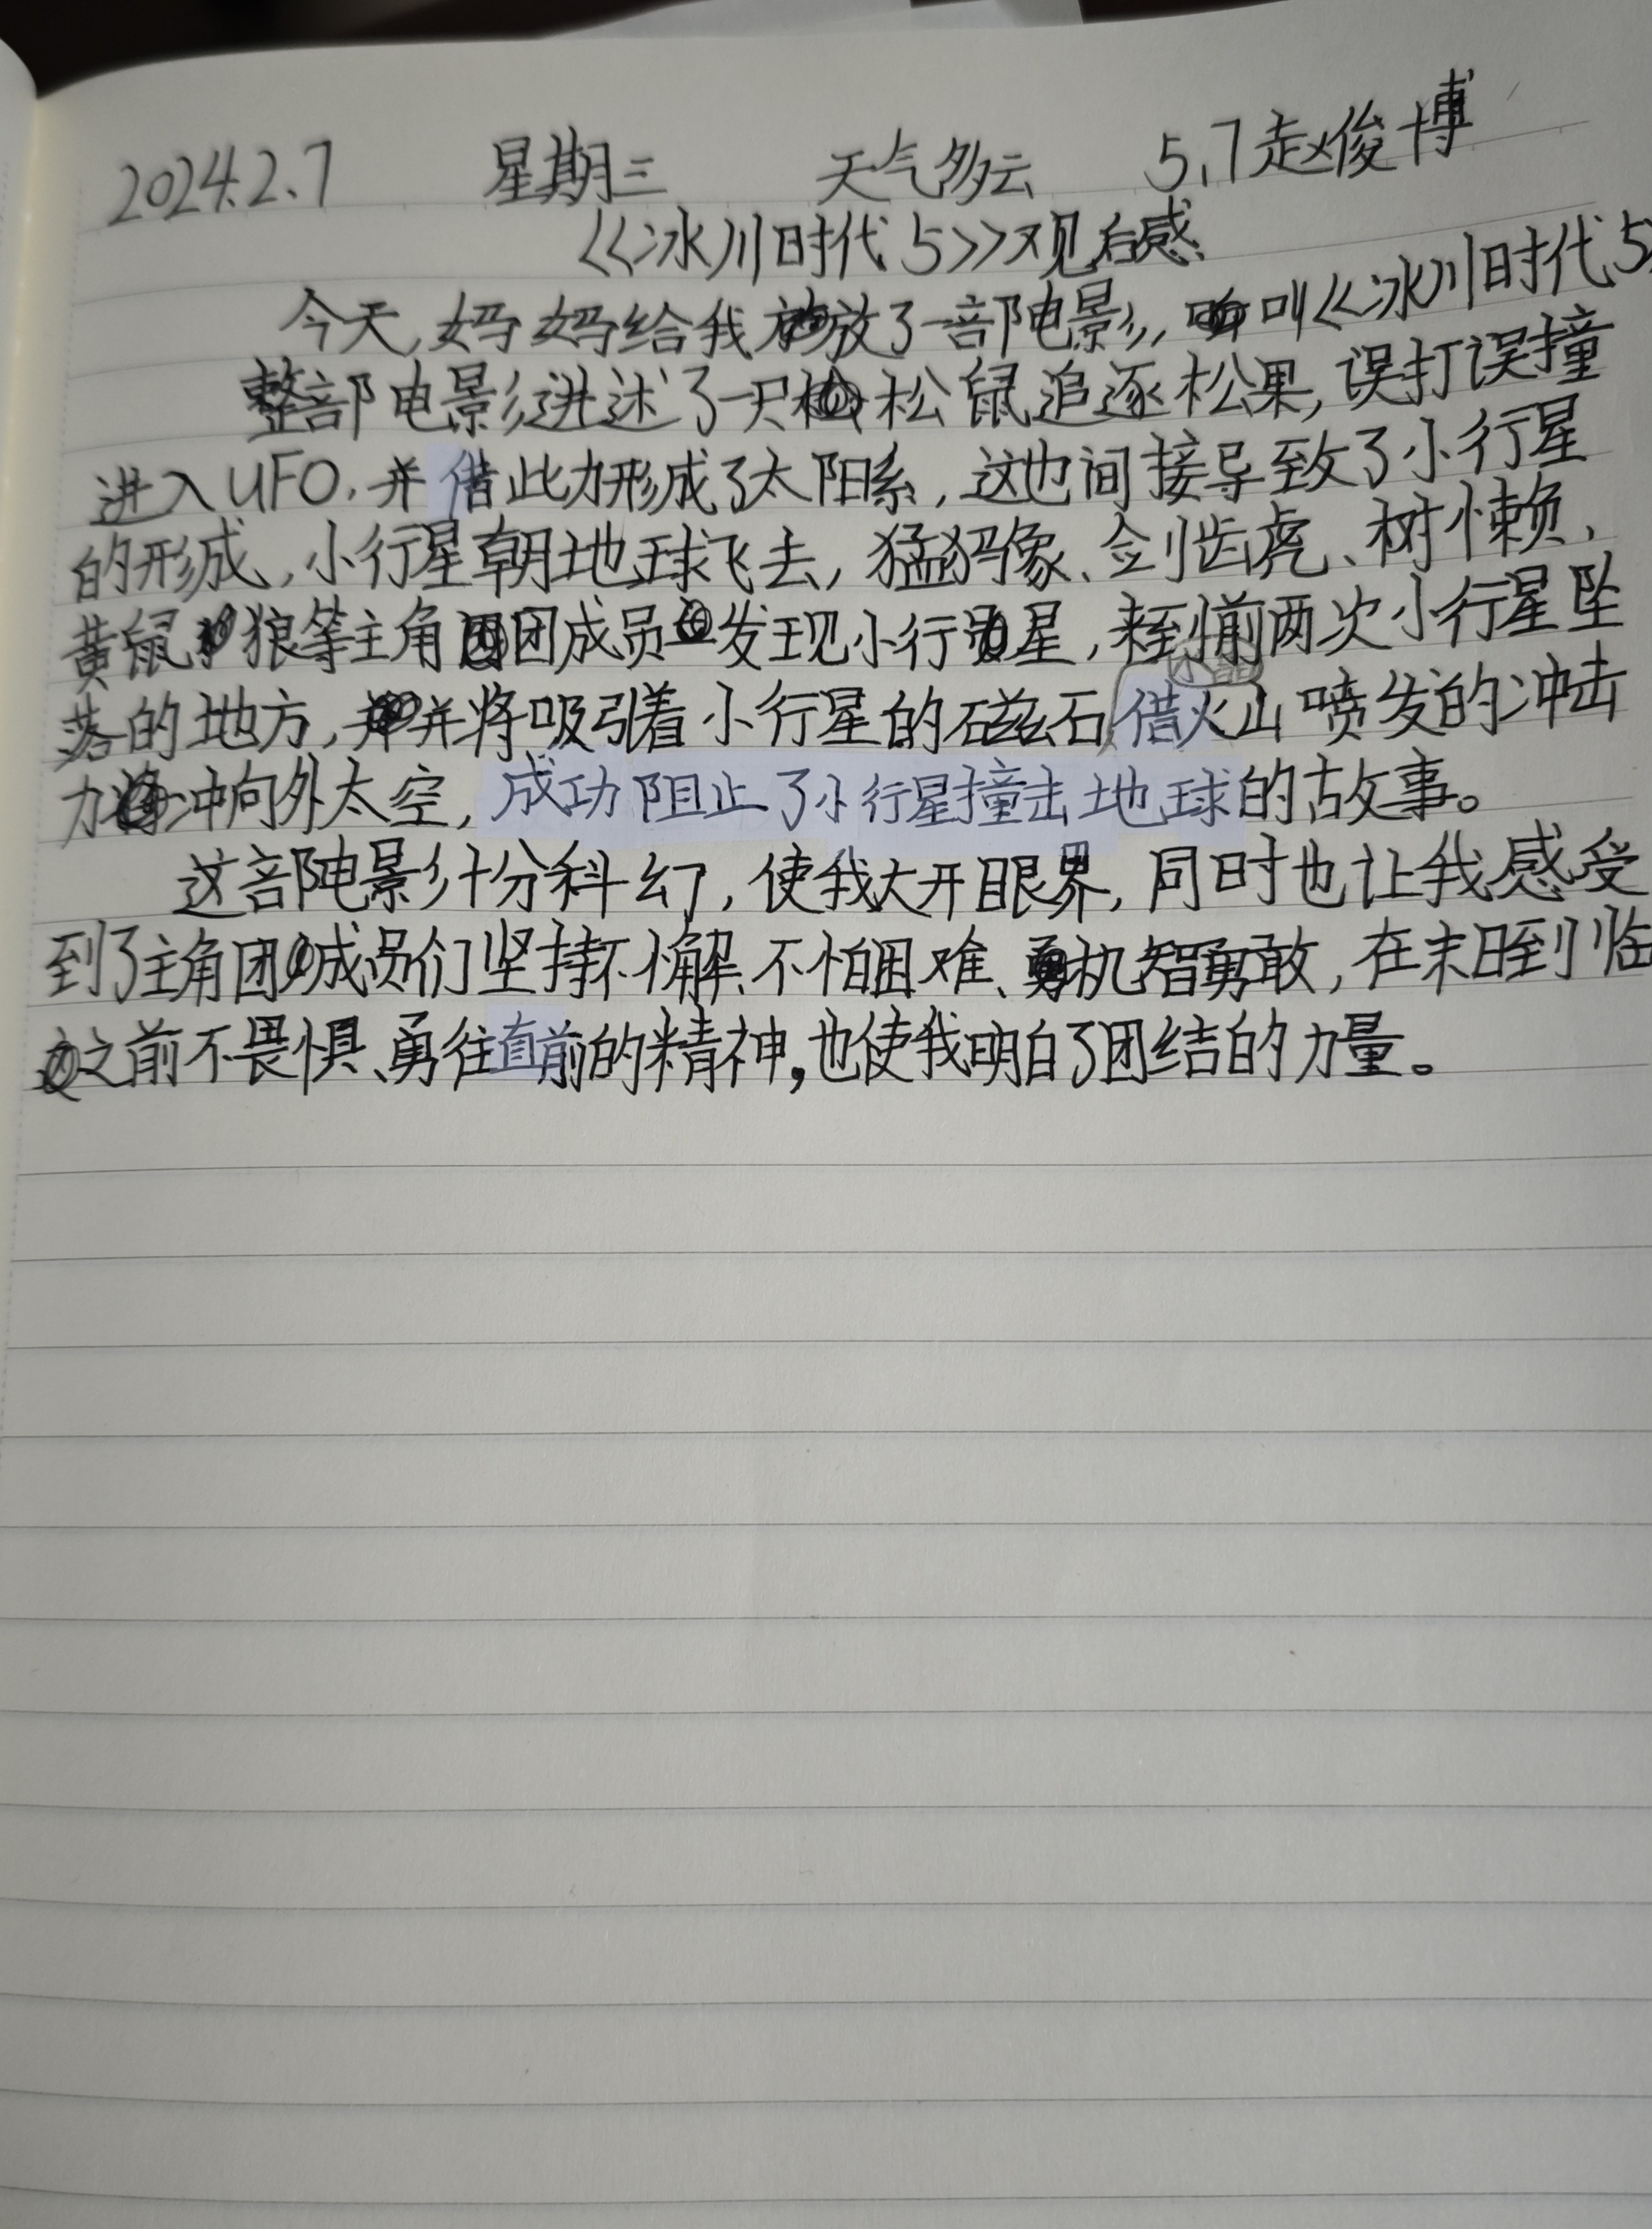 2024.2.7 星期三 天气多云 5.7赵俊博
《冰川时代5》观后感
今天,妈妈给我放了一部电影,叫《冰川时代5
整部电影讲述了一只松鼠追逐松果,误打误撞
进入UFO,并借此力形成了太阳系,这也间接导致了小行星
的形成,小行星朝地球飞去,猛犸象、剑齿虎、树懒、
黄鼠狼等主角团成员发现小行星,来到前两次小行星坠
落的地方,并将吸引着小行星的磁石借火山喷发的冲击
力冲向外太空,成功阻止了小行星撞击地球的故事。
这部电影十分科幻,使我大开眼界,同时也让我感受
到了主角团成员们坚持不懈、不怕困难、机智勇敢,在末日到临
之前不畏惧、勇往直前的精神,也使我明白了团结的力量。